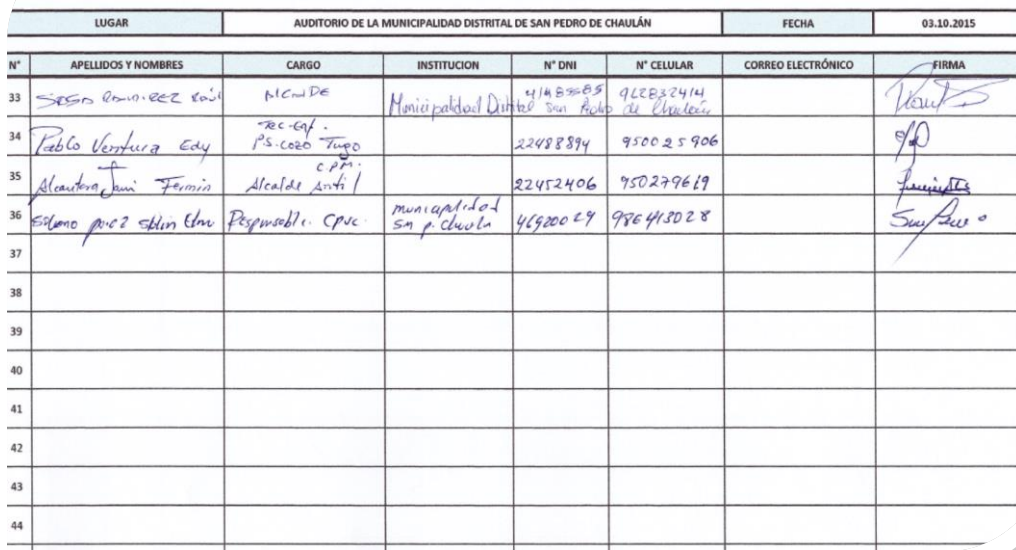 LUGAR AUDITORIO DE LA MUNICIPALIDAD DISTRITAL DE SAN PEDRO DE CHAULÁN FECHA 03.10.2015
N° APELLIDOS Y NOMBRES CARGO INSTITUCION N° DNI N° CELULAR CORREO ELECTRÓNICO FIRMA
33 Raúl Municipalidad Distrital San Pedro de Chaulán 962832414
34 Pablo Ventura Edy Tec-Enf. P.S. Cozo Tingo 22488894 950025906
35 Alcantara Fermin Alcalde C.PM. 22452406 950279619
36 Responsable. municipalidad Sn p. 46920029 986413028
37
38
39
40
41
42
43
44